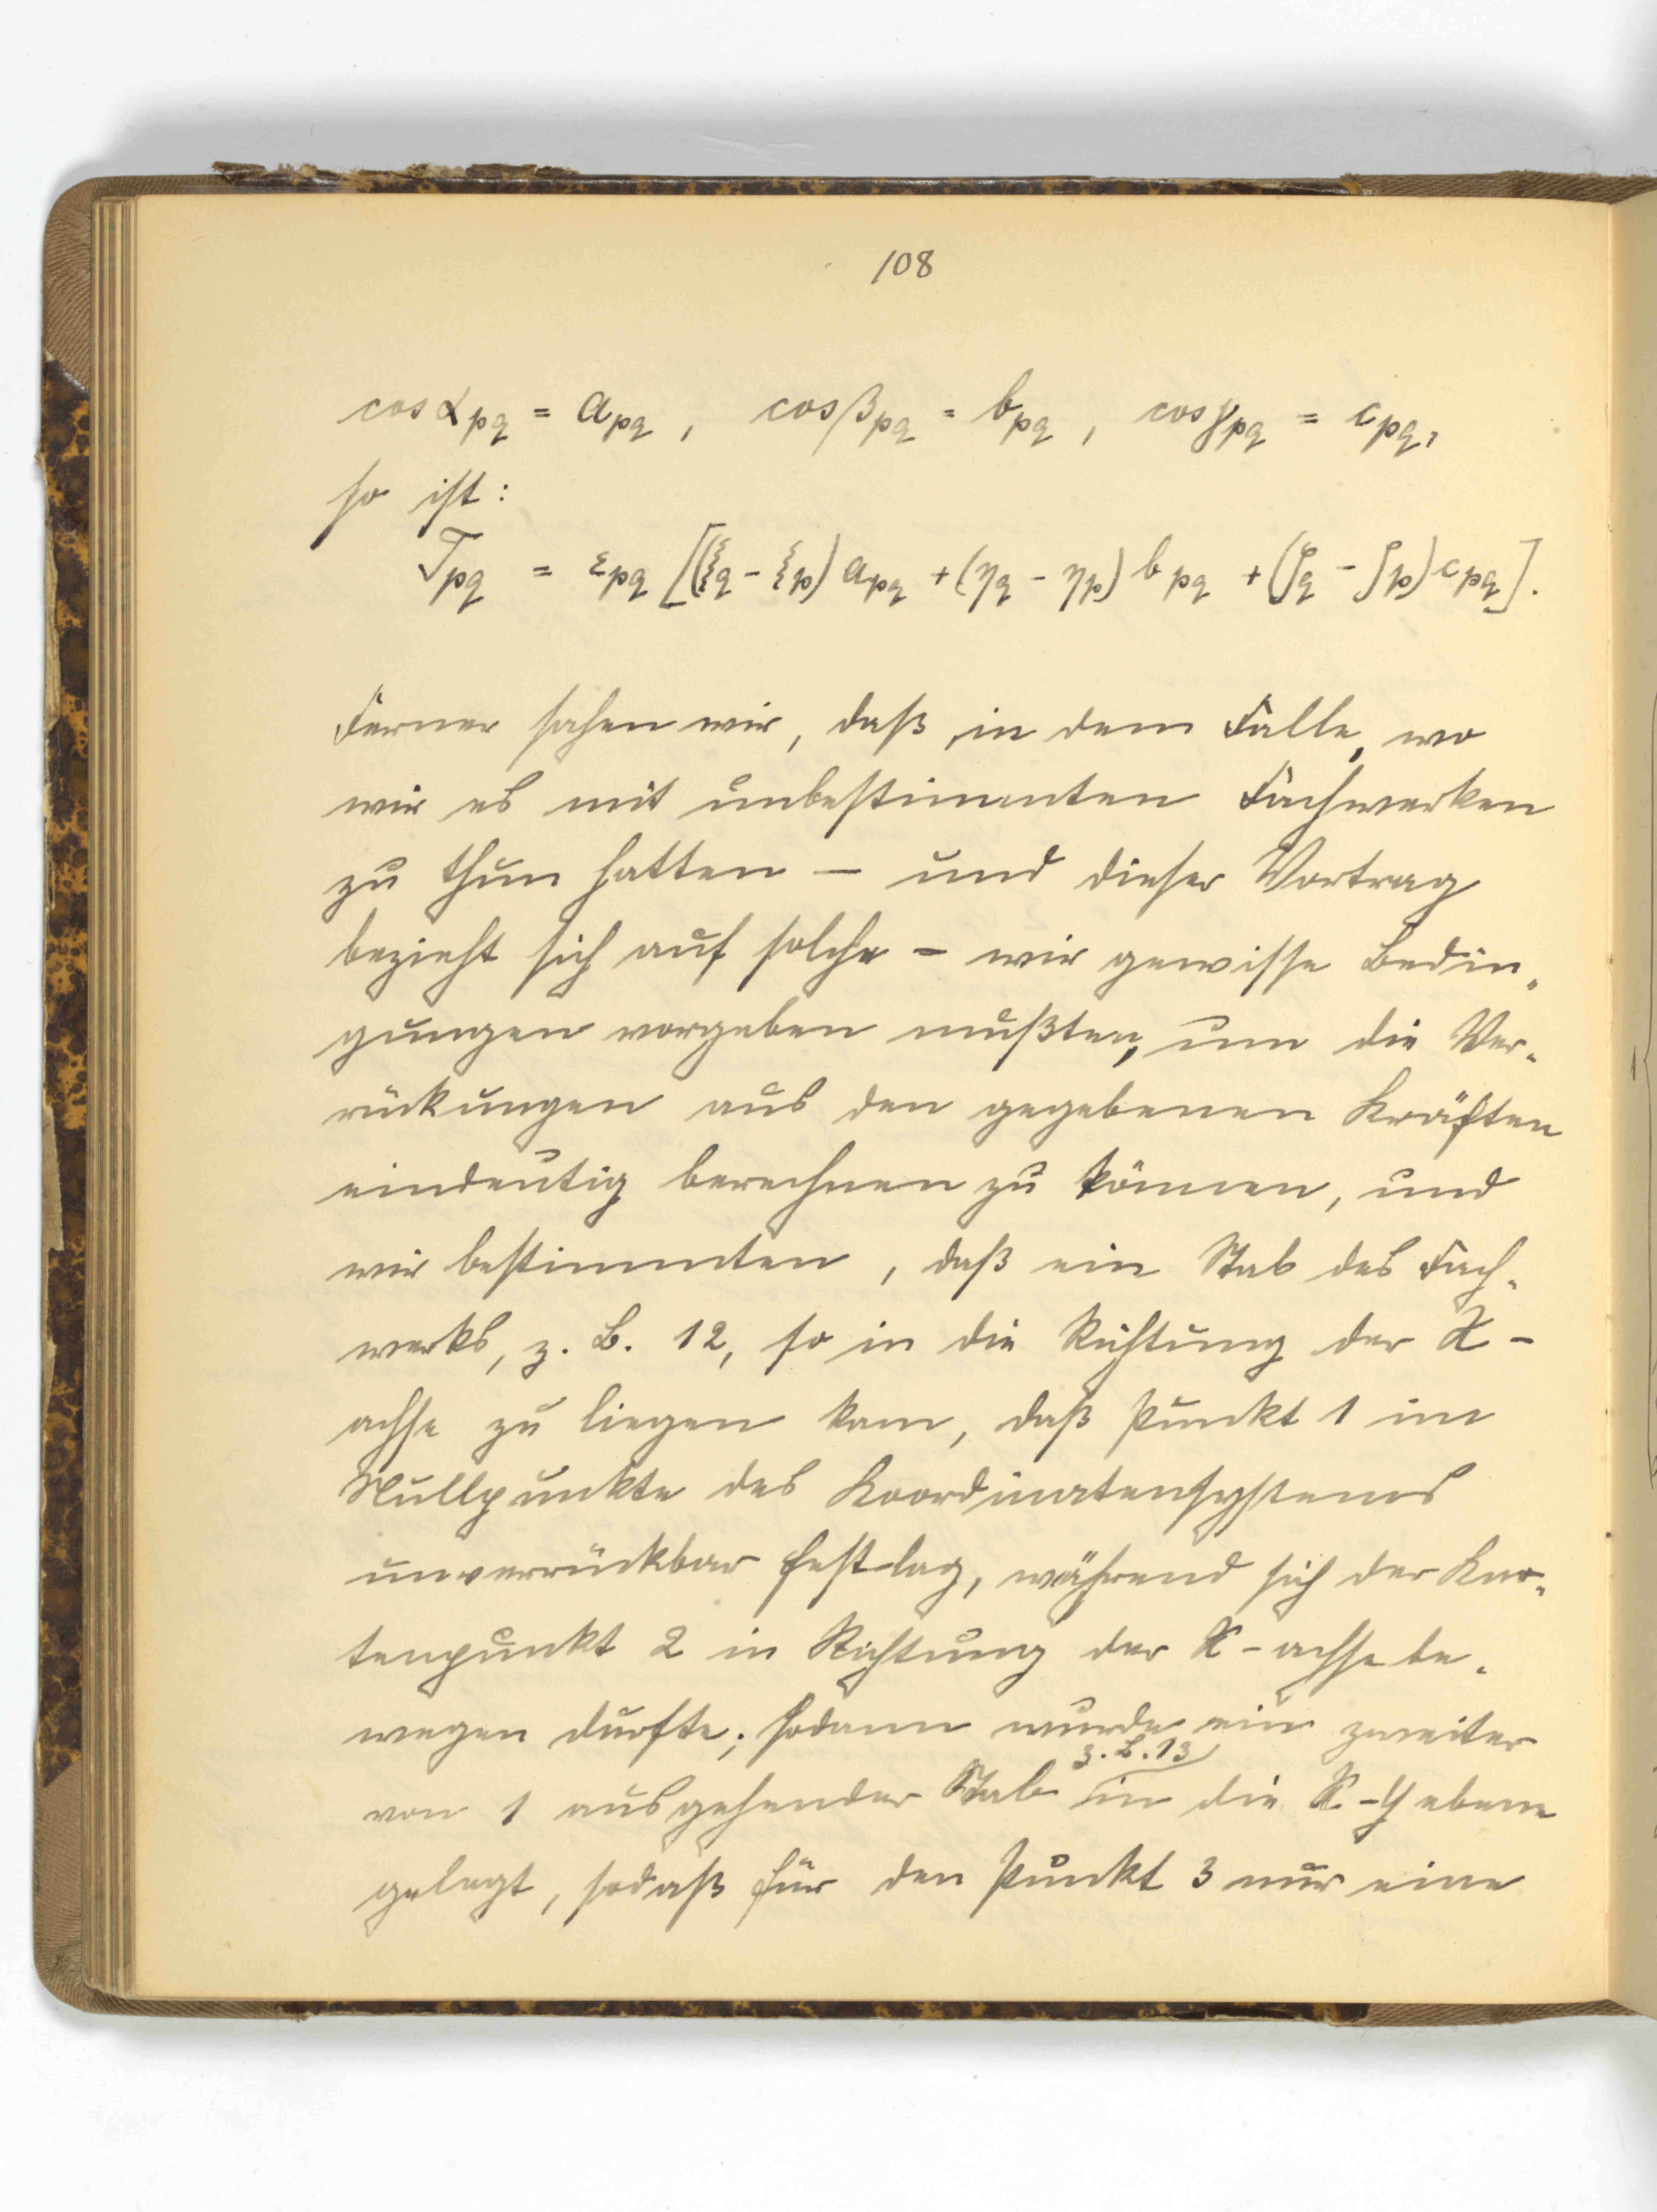 108
cos α_pq = a_pq , cos β_pq = b_pq , cos γ_pq = c_pq,
so ist:
T_pq = ε_pq [(ξ_q - ξ_p) a_pq + (η_q - η_p) b_pq + (ζ_q - ζ_p) c_pq].
Ferner sahen wir, daß, in dem Falle, wo
wir es mit unbestimmten Fachwerken
zu thun hatten — und dieser Vortrag
bezieht sich auf solche — wir gewisse Bedin-
gungen vorgeben mußten, um die Ver-
rückungen aus den gegebenen Kräften
eindeutig berechnen zu können, und
wir bestimmten, daß ein Stab des Fach-
werks, z. B. 12, so in die Richtung der X-
achse zu liegen kam, daß Punkt 1 im
Nullpunkte des Koordinatensystems
unverrückbar festlag, während sich der Kno-
tenpunkt 2 in Richtung der X-achse be-
wegen durfte; sodann wurde ein zweiter
z. B. 13
von 1 ausgehender Stab in die X-Y ebene
gelegt, sodaß für den Punkt 3 nur eine